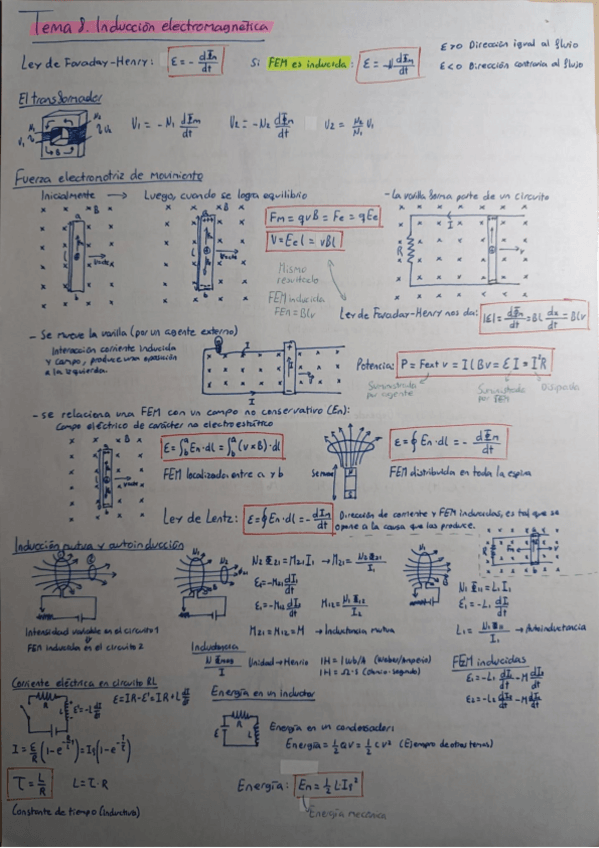 Tema 8. Inducción electromagnética
Ley de Faraday-Henry: ε = - dΦm/dt   Si FEM es inducida: ε = -N dΦm/dt   ε>0 Dirección igual al flujo
ε<0 Dirección contraria al flujo
El transformador
V1 = -N1 dΦm/dt   V2 = -N2 dΦm/dt   V2 = N2/N1 V1
Fuerza electromotriz de movimiento
Inicialmente → Luego, cuando se logra equilibrio   - La varilla forma parte de un circuito
Fm = qvB = Fe = qEe
V = Ee l = vBl
Mismo resultado
FEM inducida
FEM = Blv
Ley de Faraday-Henry nos da: |ε| = dΦm/dt = Bl dx/dt = Blv
- Se mueve la varilla (por un agente externo)
Interacción corriente inducida
y campo, produce una oposición
a la izquierda.
Potencia: P = Fext v = I l B v = ε I = I²R
Suministrada por agente   Suministrada por FEM   Disipada
- Se relaciona una FEM con un campo no conservativo (En):
Campo eléctrico de carácter no electrostático
ε = ∫ᵇᵃ En·dl = ∫ᵇᵃ (v×B)·dl   ε = ∮ En·dl = - dΦm/dt
FEM localizada entre a y b   FEM distribuida en toda la espira
Ley de Lentz: ε = ∮ En·dl = - dΦm/dt   Dirección de corriente y FEM inducidas, es tal que se
opone a la causa que las produce.
Inducción mutua y autoinducción
N2 Φ21 = M21 I1 → M21 = N2 Φ21/I1
ε2 = -M21 dI1/dt
ε1 = -M12 dI2/dt   M12 = N1 Φ12/I2
M21 = M12 = M → Inductancia mutua
N1 Φ11 = L1 I1
ε1 = -L1 dI1/dt
L1 = N1 Φ11/I1 → Autoinductancia
Intensidad variable en el circuito 1
FEM inducida en el circuito 2
Inductancia
Unidad → Henrio   1H = 1 Wb/A (Weber/Amperio)
1H = Ω·s (Ohmio·segundo)
FEM inducidas
ε1 = -L1 dI1/dt - M dI2/dt
ε2 = -L2 dI2/dt - M dI1/dt
Corriente eléctrica en circuito RL
ε' = -L dI/dt   ε = IR - ε' = IR + L dI/dt
Energía en un inductor
Energía en un condensador:
Energía = ½ QV = ½ CV² (Ejemplo de otros temas)
τ = L/R   L = τ·R
Constante de tiempo (inductivo)
Energía: Em = ½ L If²
Energía mecánica